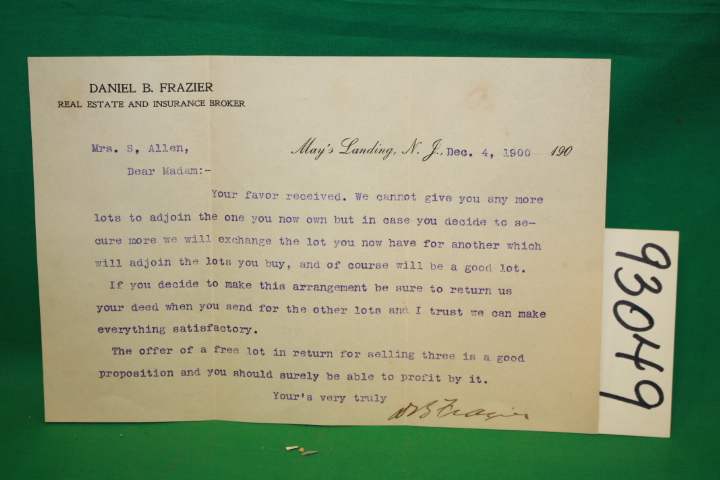 DANIEL B. FRAZIER
REAL ESTATE AND INSURANCE BROKER
May's Landing, N. J., Dec. 4, 1900 190
Mrs. S, Allen,
Dear Madam:-
Your favor received. We cannot give you any more
lots to adjoin the one you now own but in case you decide to se-
cure more we will exchange the lot you now have for another which
will adjoin the lots you buy, and of course will be a good lot.
If you decide to make this arrangement be sure to return us
your deed when you send for the other lots and I trust we can make
everything satisfactory.
The offer of a free lot in return for selling three is a good
proposition and you should surely be able to profit by it.
Your's very truly
D B Frazier
93049